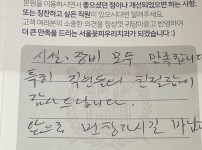 본원을 이용하시면서 좋으셨던 점이나 개선되었으면 하는 사항,
또는 칭찬하고 싶은 직원이 있으시다면 일려주세요.
고객 여러분의 소중한 의견을 정성껏 귀담아듣고 반영하여
더 큰 만족을 드리는 서울꽃피우리치과가 되겠습니다 :)
시설, 장비 모두 만족합니다
특히 직원분들의 친절함에
감사드립니다.
앞으로 번창하시길 바랍니다